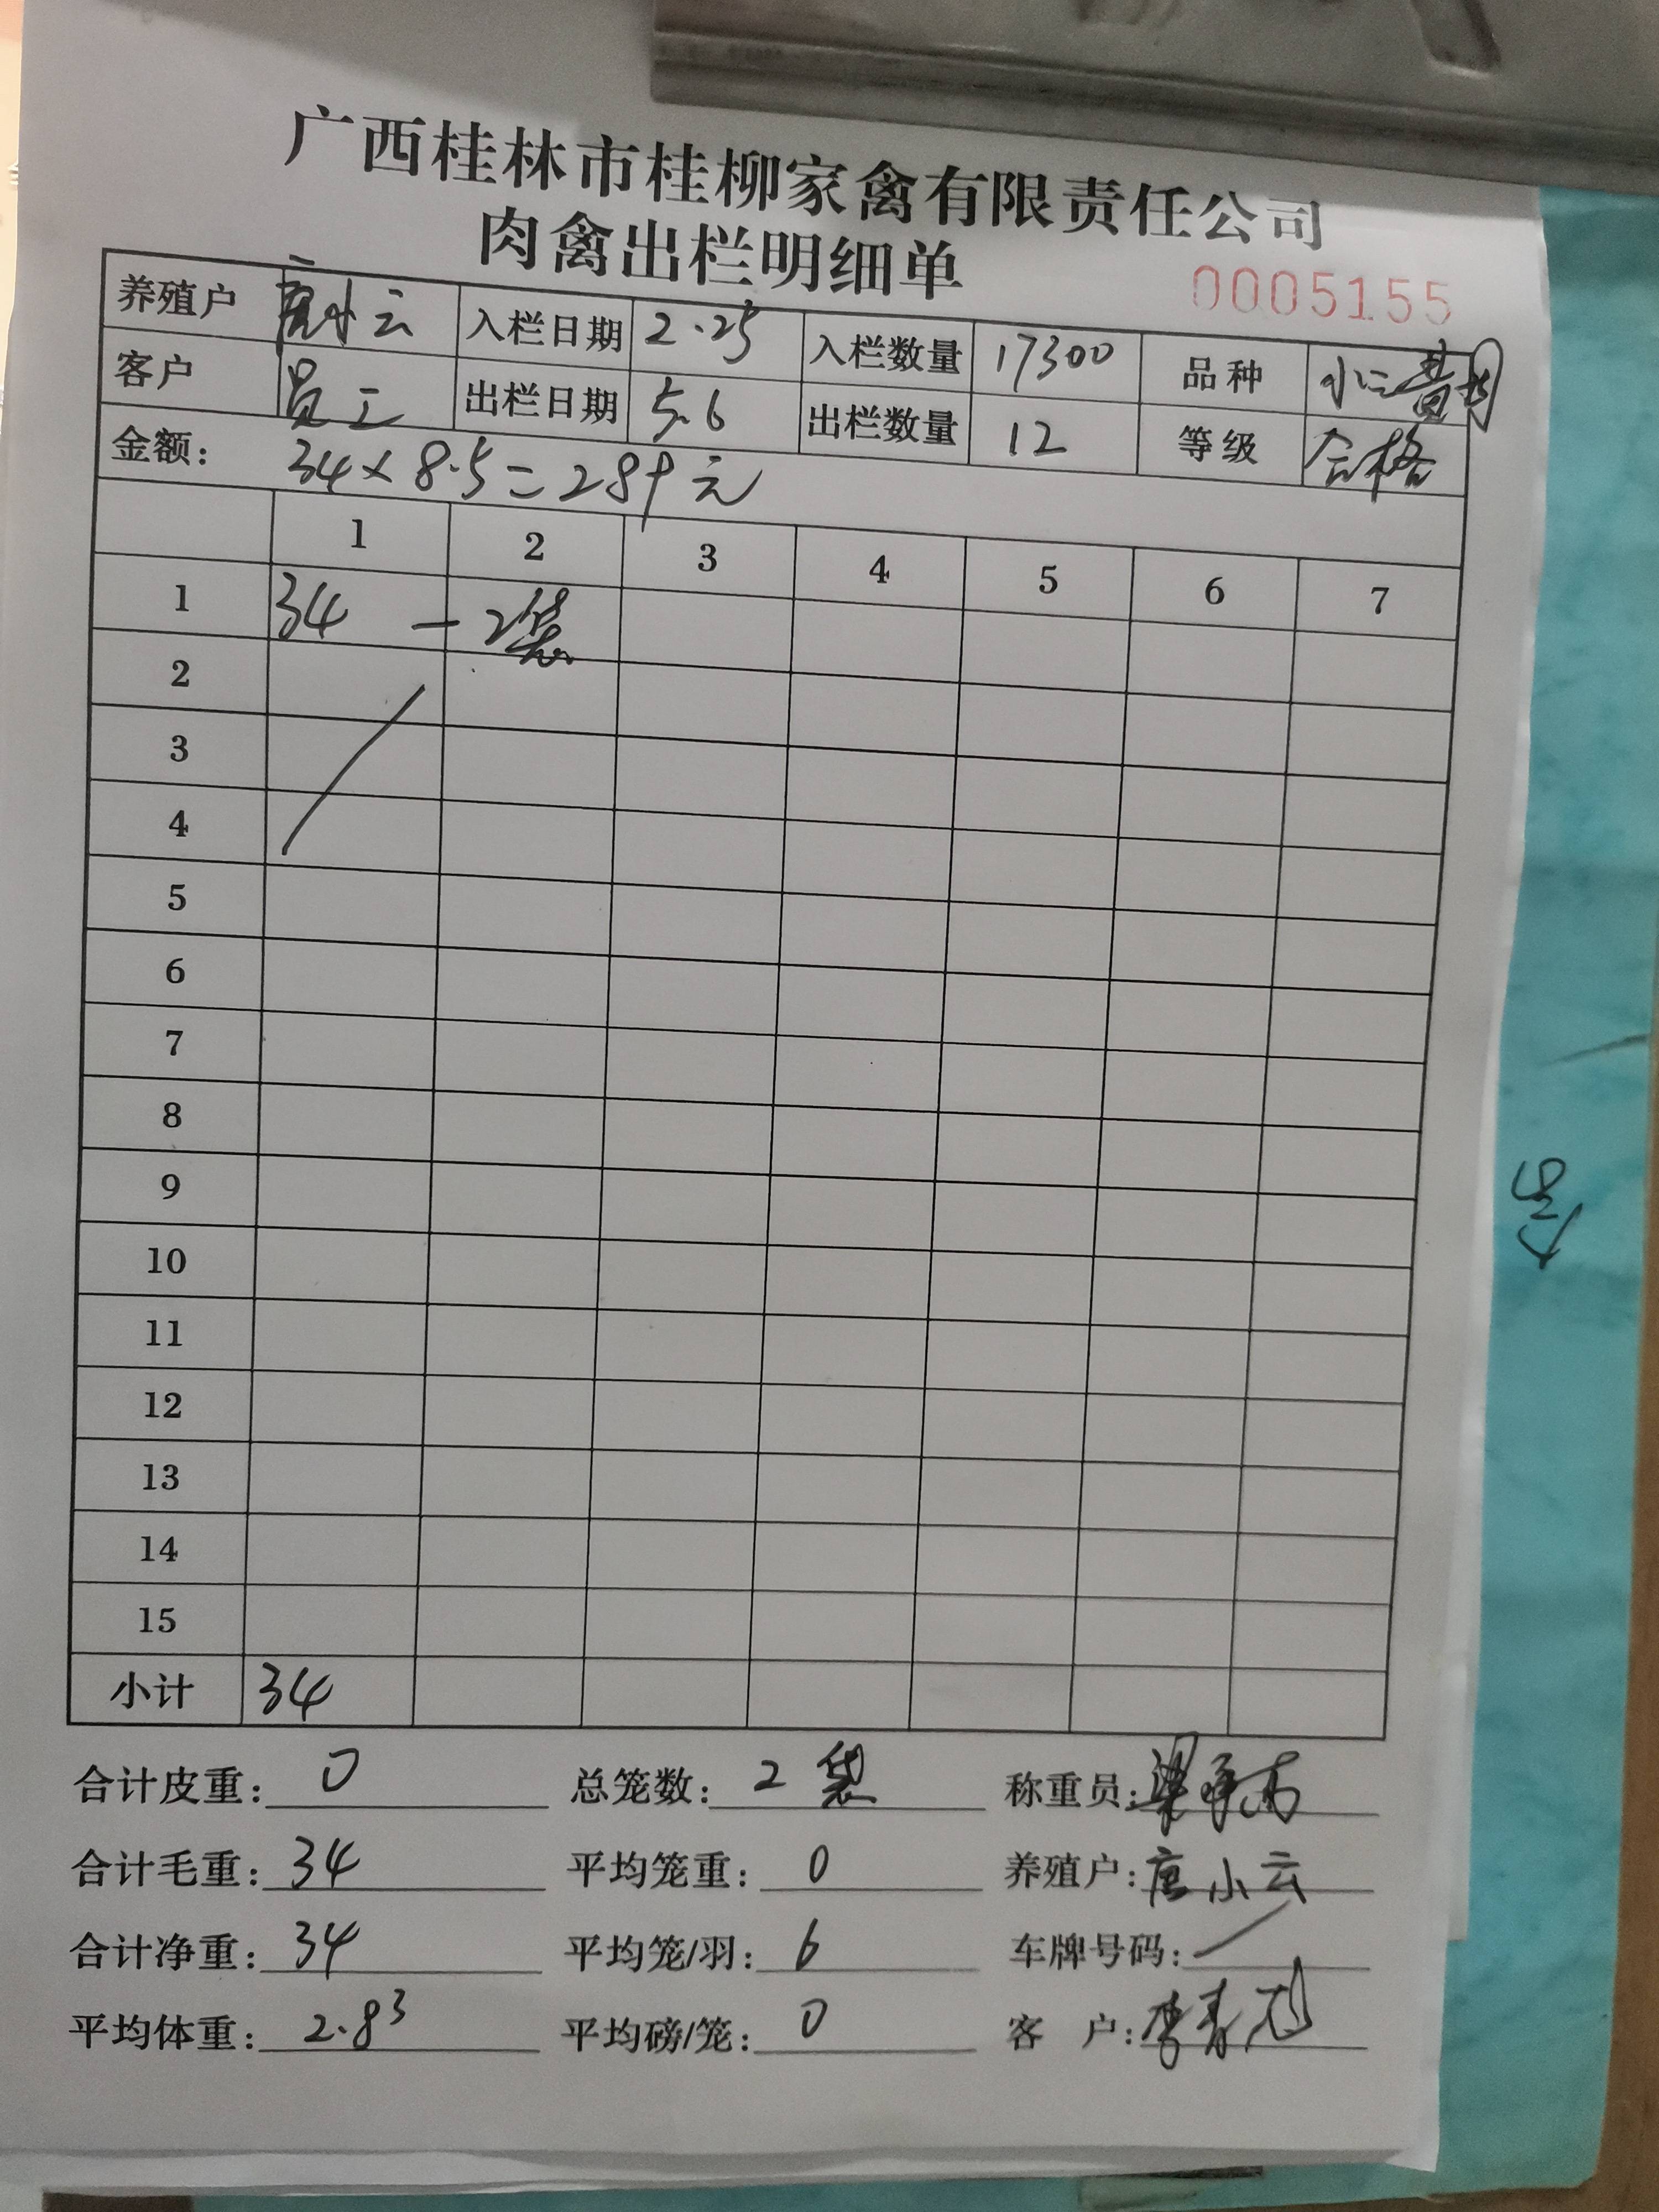 广西桂林市桂柳家禽有限责任公司
肉禽出栏明细单
0005155
养殖户 唐小云 入栏日期 2.25 入栏数量 17300 品种 小二黄
客户 员工 出栏日期 5.6 出栏数量 12 等级 合格
金额: 34×8.5=289元
1 2 3 4 5 6 7
1 34 — 2袋
2
3
4
5
6
7
8
9
10
11
12
13
14
15
小计 34
合计皮重: 0 总笼数: 2袋 称重员: 梁
合计毛重: 34 平均笼重: 0 养殖户: 唐小云
合计净重: 34 平均笼/羽: 6 车牌号码:
平均体重: 2.83 平均磅/笼: 0 客 户: 李春